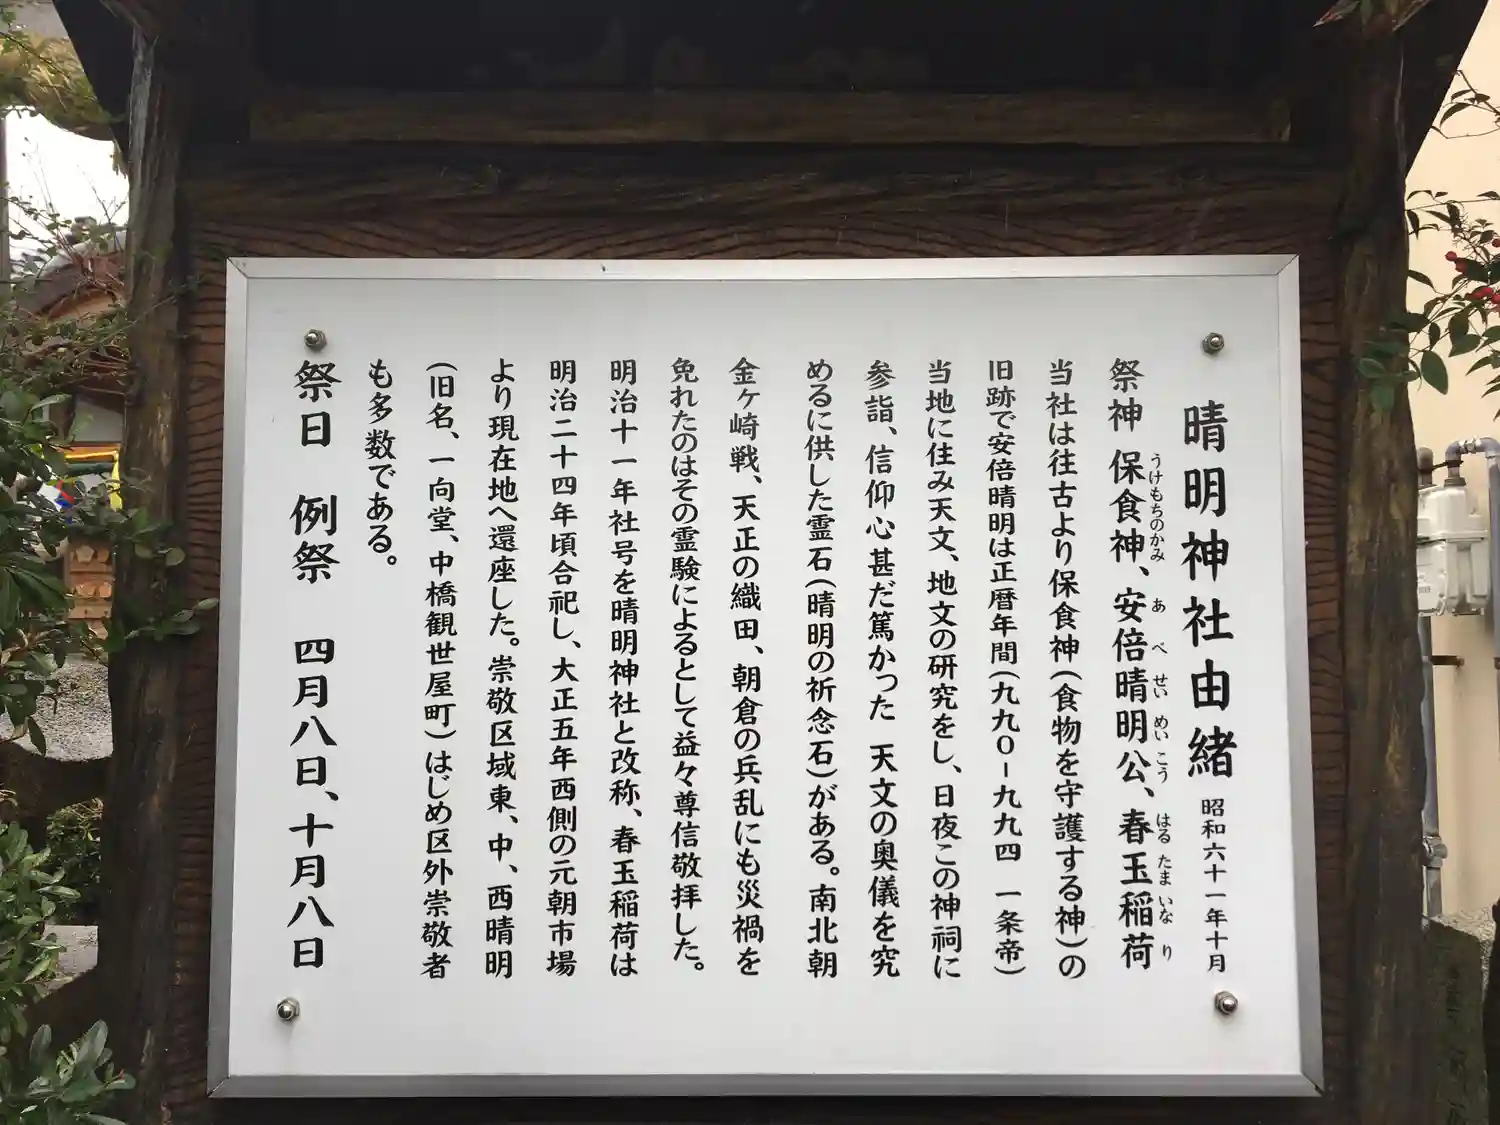 晴明神社由緒 昭和六十一年十月
祭神 保食神、安倍晴明公、春玉稲荷
うけもちのかみ あべせいめいこう はるたまいなり
当社は往古より保食神(食物を守護する神)の
旧跡で安倍晴明は正暦年間(九九〇-九九四 一条帝)
当地に住み天文、地文の研究をし、日夜この神祠に
参詣、信仰心甚だ篤かった 天文の奥儀を究
めるに供した霊石(晴明の祈念石)がある。南北朝
金ヶ崎戦、天正の織田、朝倉の兵乱にも災禍を
免れたのはその霊験によるとして益々尊信敬拝した。
明治十一年社号を晴明神社と改称、春玉稲荷は
明治二十四年頃合祀し、大正五年西側の元朝市場
より現在地へ還座した。崇敬区域東、中、西晴明
(旧名、一向堂、中橋観世屋町)はじめ区外崇敬者
も多数である。
祭日 例祭 四月八日、十月八日